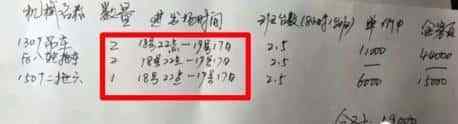 机械名称 数量 进出场时间 班台数 单价 金额
130T吊车 2 18号22点-19号17点 2.5 11000 44000
后八轮拖车 2 18号22点-19号17点 2.5
150T二拖六 1 18号22点-19号17点 2.5 6000 15000